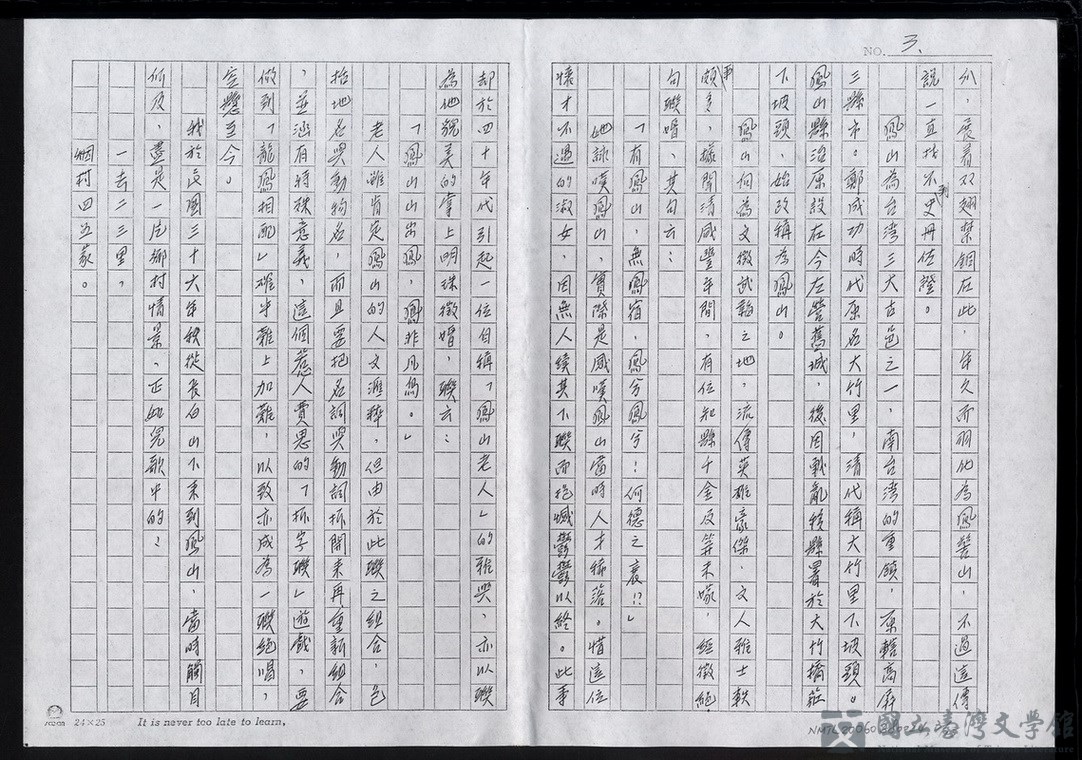 NO. 3.
爪，展着双翅禁錮在此，年久亦羽化為鳳髻山，不過這傳
說一直找不到史冊佐證。
鳳山為台湾三大古邑之一，南台湾的重鎮，原轄高屏
三縣市。鄭成功時代原名大竹里，清代稱大竹里下坡頭。
鳳山縣治原設在今左營舊城，後因戰亂移縣署於大竹橋莊
下坡頭，始改稱為鳳山。
鳳山何為文徵武韜之地，流傳英雄豪傑、文人雅士軼
事頗多，據聞清咸豐年間，有位知縣千金及笄未嫁，經徵絕
句聯婚，其句云：
「有鳳山，無鳳宿，鳳兮鳳兮！何德之衰!?」
她詠嘆鳳山，實際是感嘆鳳山當時人才稀落。惜這位
懷才不遇的淑女，因無人續其下聯而抱憾鬱鬱以終。此事
却於四十年代引起一位自稱「鳳山老人」的雅興，亦以聯
為他貌美的掌上明珠徵婚，聯云：
「鳳山山出鳳，鳳非凡鳥。」
老人雖肯定鳳山的人文滙粹，但由於此聯之組合，包
括地名與動物名，而且要把名詞與動詞拆開來再重新組合
，並涵有特殊意義，這個惹人費思的「拆字聯」遊戲，要
做到「龍鳳相配」確乎難上加難，以致亦成為一聯絕唱，
空懸至今。
我於民國三十六年秋從長白山下來到鳳山，當時觸目
何及，盡是一片鄉村情景、正如兒歌中的：
一去二三里，
個村四五家。
24×25
It is never too late to learn,
國立臺灣文學館
National Museum of Taiwan Literature